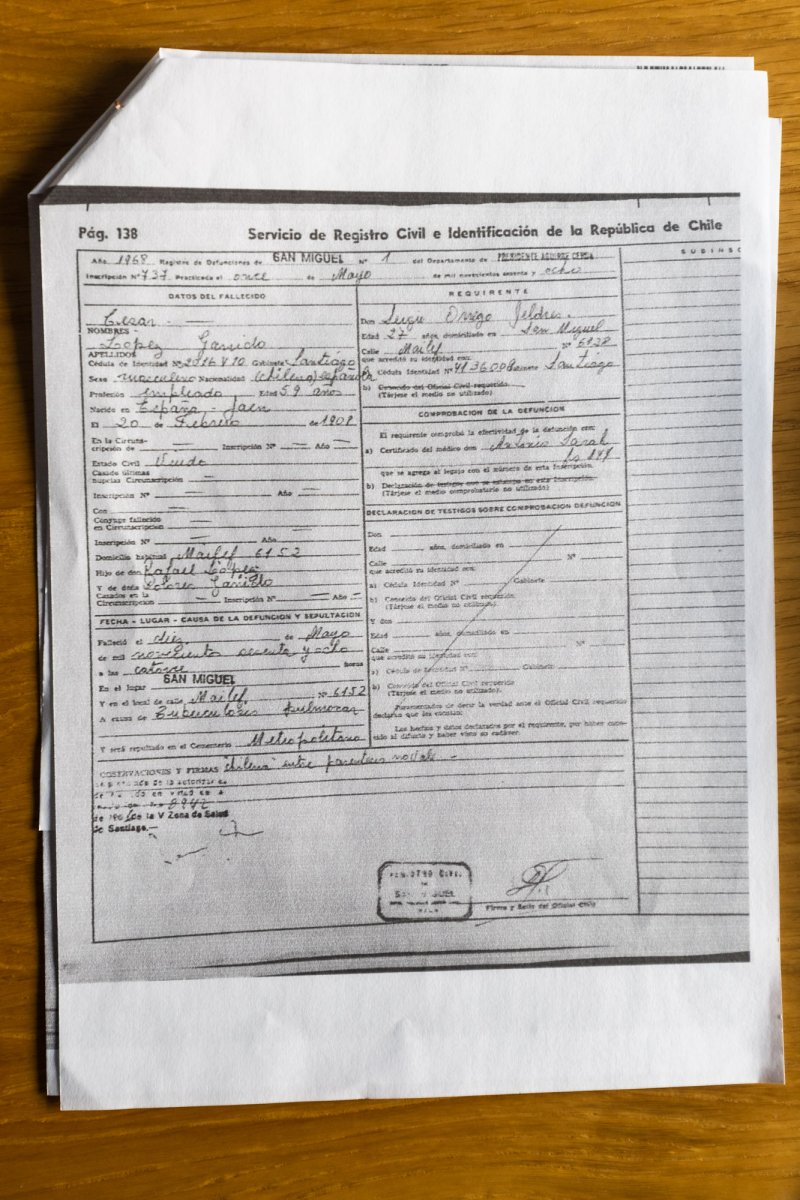 Pág. 138
Servicio de Registro Civil e Identificación de la República de Chile
Año 1968 Registro de Defunciones de SAN MIGUEL Nº 1 del Departamento de PRESIDENTE AGUIRRE CERDA
Inscripción Nº 737. Practicada el once de Mayo de mil novecientos sesenta y ocho
SUBINSC
DATOS DEL FALLECIDO
Cesar
NOMBRES
López Garrido
APELLIDOS
Cédula de Identidad Nº Gabinete Santiago
Sexo masculino Nacionalidad (chilena) española
Profesión empleado Edad 59 años
Nacido en España - Jaen
El 20 de Febrero de 1908
En la Circuns-
cripción de Inscripción Nº Año
Estado Civil Viudo
Casado últimas
nupcias Circunscripción
Inscripción Nº Año
Con
Conyuge fallecido
en Circunscripcion
Inscripción Nº Año
Domicilio habitual Mailef 6152
Hijo de don Rafael López
Y de doña Dolores Garrido
Casados en la
Circunscripcion Inscripción Nº Año
FECHA - LUGAR - CAUSA DE LA DEFUNCION Y SEPULTACION
Falleció el diez de Mayo
de mil novecientos sesenta y ocho
a las catorce horas
En el lugar SAN MIGUEL
Y en el local de calle Mailef Nº 6152
A causa de Tuberculosis Pulmonar
Y será sepultado en el Cementerio Metropolitano
REQUIRENTE
Don Sergio Orrego Jeldres.
Edad 27 años, domiciliado en San Miguel
Calle Mailef Nº 6128
que acreditó su identidad con:
Cédula Identidad Nº Gabinete Santiago
b) Conocido del Oficial Civil requerido.
(Tárjese el medio no utilizado)
COMPROBACION DE LA DEFUNCION
El requirente comprobó la efectividad de la defunción con:
a) Certificado del médico don Antonio Sarah
que se agrega al legajo con el número de esta inscripción.
b) Declaración de testigos que se estampa en esta inscripción.
(Tárjese el medio comprobatorio no utilizado)
DECLARACION DE TESTIGOS SOBRE COMPROBACION DEFUNCION
Don
Edad años, domiciliado en
Calle Nº
que acreditó su identidad con:
a) Cédula Identidad Nº Gabinete
b) Conocido del Oficial Civil requerido.
(Tárjese el medio no utilizado)
Y don
Edad años, domiciliado en
Calle Nº
que acreditó su identidad con:
a) Cédula de Identidad Nº Gabinete
b) Conocido del Oficial Civil requerido
(Tárjese el medio no utilizado).
Juramentados de decir la verdad ante el Oficial Civil
declaran que les constan:
Los hechos y datos declarados por el requirente, por haber cono-
cido al difunto y haber visto su cadáver.
OBSERVACIONES Y FIRMAS chilena entre parentesis no vale
de la V Zona de Salud
de Santiago.
REGISTRO CIVIL
DE
SAN MIGUEL
CHILE
Firma y Sello del Oficial Civil